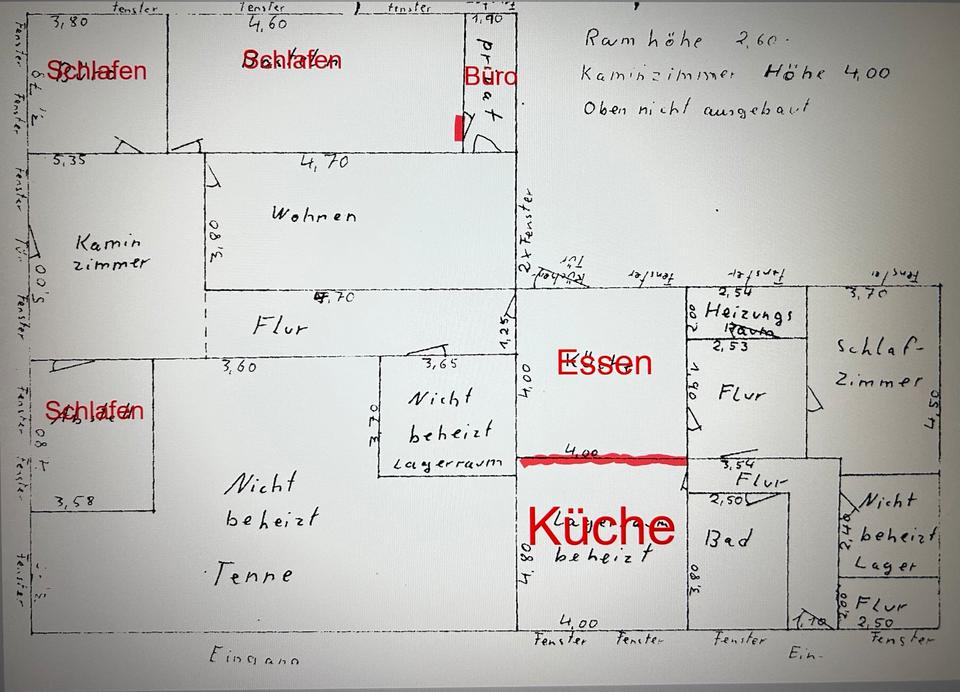 Fenster
Fenster
Fenster
3,80
4,60
1,90
Schlafen
Schlafen
Büro
privat
Ramhöhe 2,60.
Kaminzimmer Höhe 4,00
Oben nicht ausgebaut
Fenster
Fenster
Fenster
Tür
Fenster
Fenster
Fenster
Fenster
5,35
4,70
Kamin
zimmer
3,80
Wohnen
2x Fenster
5,00
Küchen
Tür
Fenster
Fenster
Fenster
4,70
Flur
1,25
2,54
3,70
Heizungs
Raum
2,00
2,53
3,60
3,65
4,00
Essen
1,90
Flur
Schlaf-
Zimmer
4,50
Schlafen
Nicht
beheizt
Lagerraum
3,70
4,80
3,58
4,00
3,54
Flur
2,50
Nicht
beheizt
Tenne
Küche
beheizt
4,80
Bad
3,80
2,40
Nicht
beheizt
Lager
2,00
Flur
4,00
1,10
2,50
Fenster
Fenster
Fenster
Fenster
Eingang
Ein-